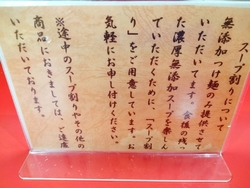 スープ割りについて
無添加つけ麺のみ提供させて
いただいてます。食後の残っ
た濃厚無添加スープを楽しん
でいただくために、「スープ割
り」をご用意しています。お
気軽にお申し付けください。
※途中のスープ割りやその他の
商品におきましては、ご遠慮
いただいております。